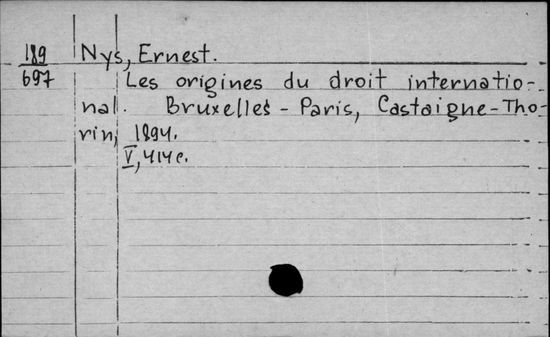 189 Nys, Ernest.
697 Les origines du droit internatio-
nal. Bruxelles - Paris, Castaigne-Tho-
rin, 1894.
V, 414 c.